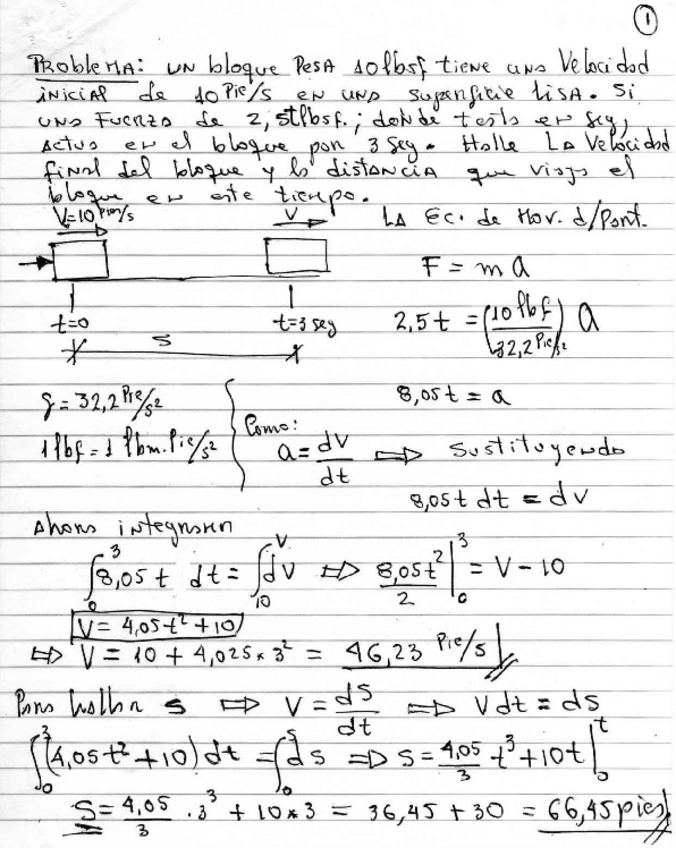 1
PROBLEMA: UN bloque PESA 10 lbsf tiene una Velocidad
INICIAL de 10 Pie/s EN UNA superficie LISA. Si
UNA FUERZA de 2,5t lbsf.; donde t está en seg,
ACTUA en el bloque por 3 Seg. Halle LA Velocidad
final del bloque y la distANCIA que viaja el
bloque en este tiempo.
V=10 Pies/s V LA EC. de Mov. d/Part.
F = m a
t=0 t=3 seg 2,5 t = (10 lbf / 32,2 Pie/s²) a
S
g = 32,2 Pie/s² 8,05 t = a
1 lbf = 1 lbm.Pie/s² Como: a = dv/dt ⇒ Sustituyendo
8,05 t dt = dv
Ahora integraren
∫₀³ 8,05 t dt = ∫₁₀ⱽ dv ⇒ 8,05 t²/2 |₀³ = V - 10
V = 4,05 t² + 10
⇒ V = 10 + 4,025 * 3² = 46,23 Pie/s
Para hallar S ⇒ V = ds/dt ⇒ V dt = ds
∫₀³ (4,05 t² + 10) dt = ∫₀ˢ ds ⇒ S = 4,05/3 t³ + 10t |₀ᵗ
S = 4,05/3 . 3³ + 10 * 3 = 36,45 + 30 = 66,45 pies